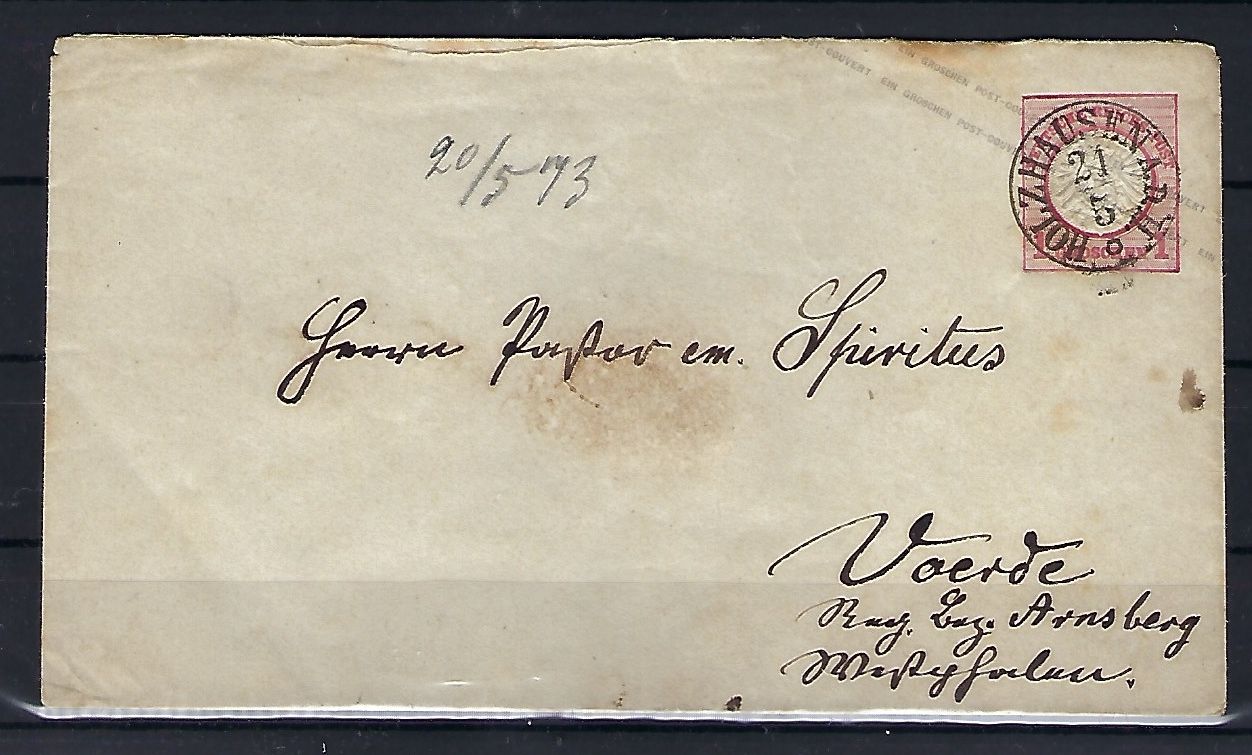 EIN GROSCHEN POST-COUVERT EIN GROSCHEN POST-COUVERT
20/5 73
HOLZHAUSEN A D H
21
5
1 GROSCHEN 1
Herrn Pastor em. Spiritus
Voerde
Reg. Bez. Arnsberg
Westphalen.